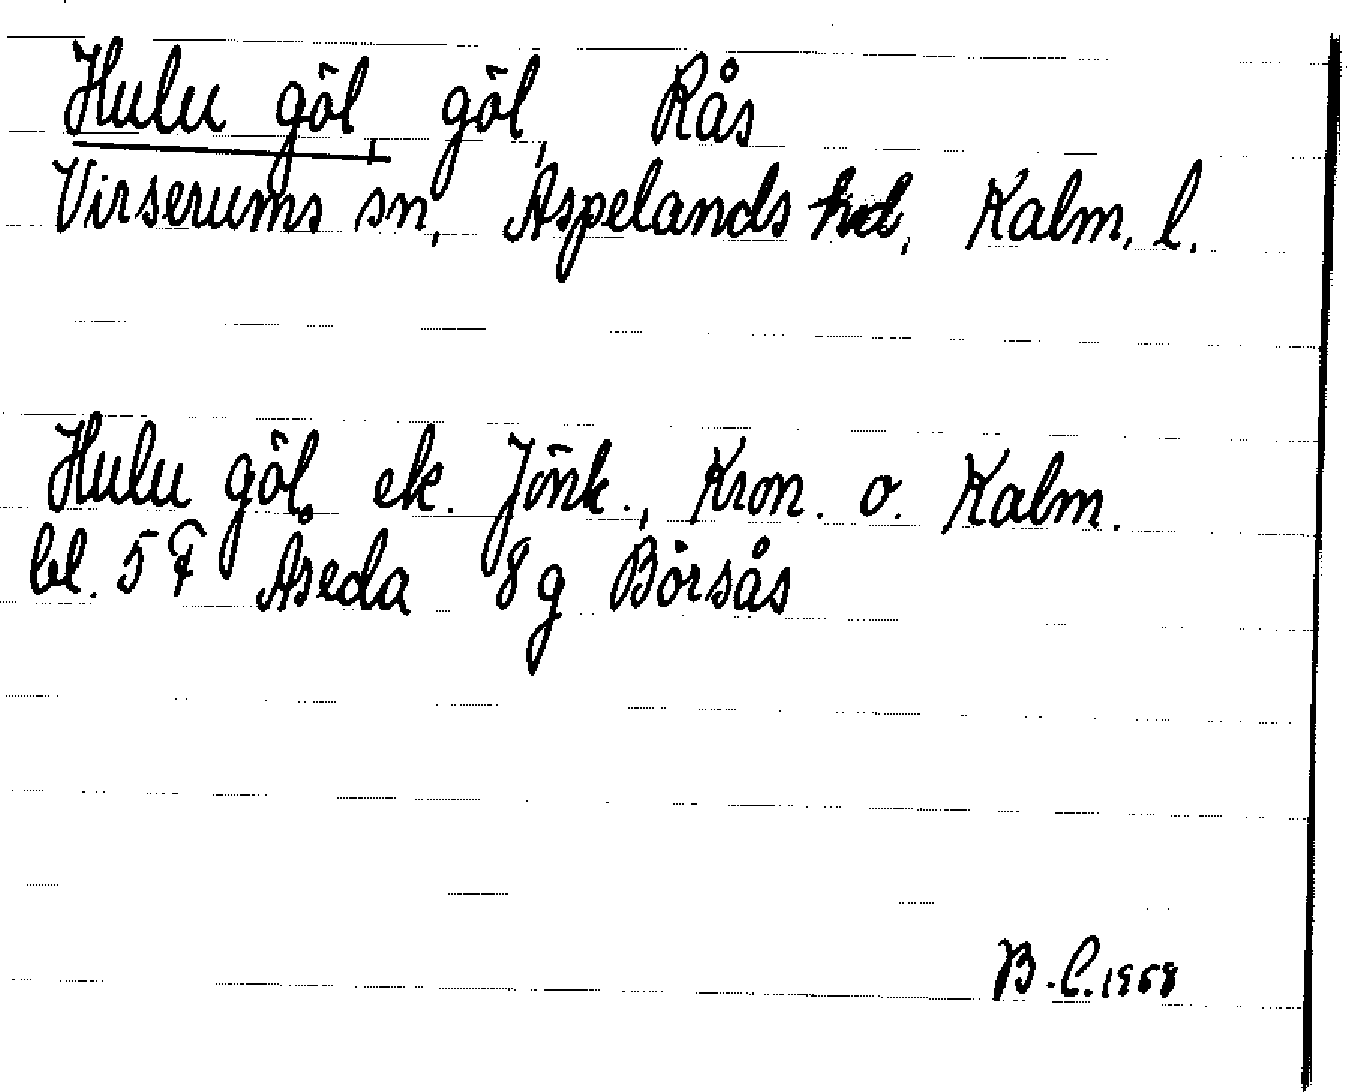 Hulu göl, göl, Rås
Virserums sn, Aspelands hd, Kalm. l.
Hulu göl, ek. Jönk., Kron. o. Kalm.
bl. 5 F Åseda 8 g Börsås
B.L. 1968